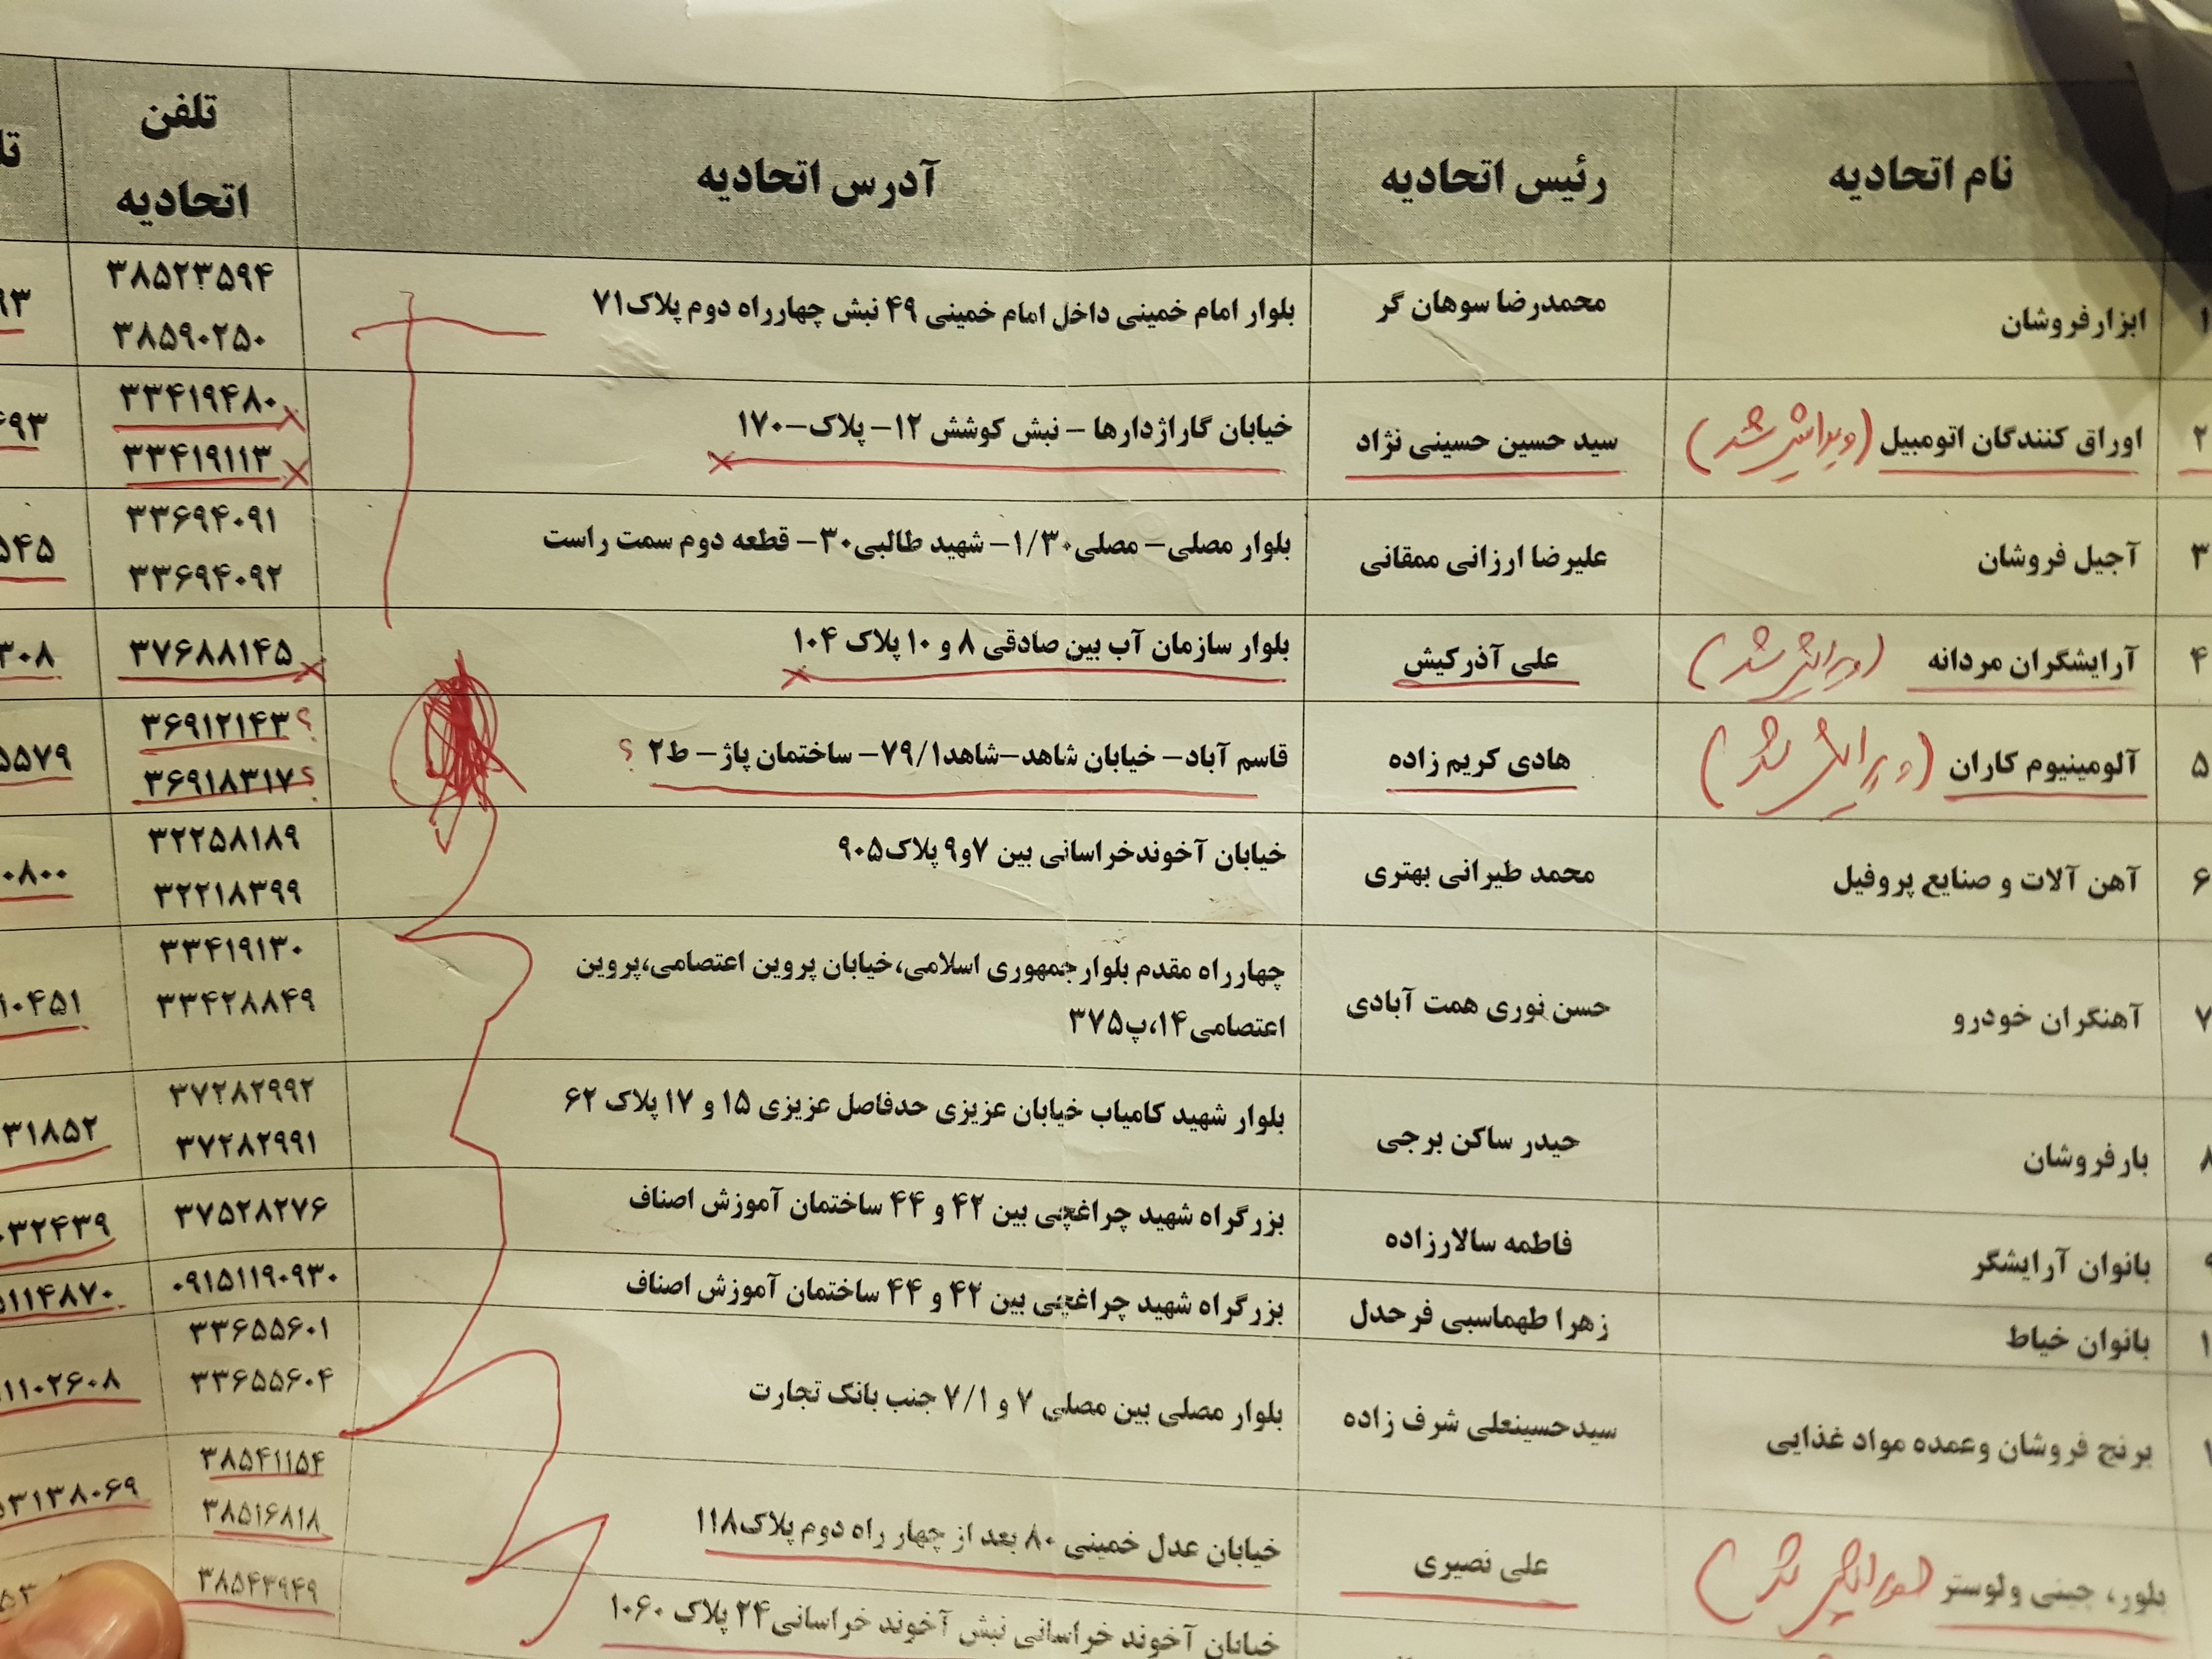 نام اتحادیه
رئیس اتحادیه
آدرس اتحادیه
تلفن
اتحادیه
۱
ابزارفروشان
محمدرضا سوهان گر
بلوار امام خمینی داخل امام خمینی ۴۹ نبش چهارراه دوم پلاک۷۱
۳۸۵۲۳۵۹۴
۳۸۵۹۰۲۵۰
۹۳
۲
اوراق کنندگان اتومبیل (ویرایش شد)
سید حسین حسینی نژاد
خیابان گاراژدارها – نبش کوشش ۱۲– پلاک–۱۷۰
۳۳۴۱۹۴۸۰
۳۳۴۱۹۱۱۳
۶۹۳
۳
آجیل فروشان
علیرضا ارزانی ممقانی
بلوار مصلی– مصلی۱/۳۰– شهید طالبی۳۰– قطعه دوم سمت راست
۳۳۶۹۴۰۹۱
۳۳۶۹۴۰۹۲
۵۴۵
۴
آرایشگران مردانه (ویرایش شد)
علی آذرکیش
بلوار سازمان آب بین صادقی ۸ و ۱۰ پلاک ۱۰۴
۳۷۶۸۸۱۴۵
۳۰۸
۵
آلومینیوم کاران (ویرایش شد)
هادی کریم زاده
قاسم آباد– خیابان شاهد–شاهد۷۹/۱– ساختمان پاژ– ط۲ ؟
۳۶۹۱۲۱۴۳ ؟
۳۶۹۱۸۳۱۷ ؟
۵۵۷۹
۶
آهن آلات و صنایع پروفیل
محمد طیرانی بهتری
خیابان آخوندخراسانی بین ۷و۹ پلاک۹۰۵
۳۲۲۵۸۱۸۹
۳۲۲۱۸۳۹۹
۰۸۰۰
۷
آهنگران خودرو
حسن نوری همت آبادی
چهارراه مقدم بلوارجمهوری اسلامی،خیابان پروین اعتصامی،پروین
اعتصامی۱۴،پ۳۷۵
۳۳۴۱۹۱۳۰
۳۳۴۲۸۸۴۹
۱۰۴۵۱
۸
بارفروشان
حیدر ساکن برجی
بلوار شهید کامیاب خیابان عزیزی حدفاصل عزیزی ۱۵ و ۱۷ پلاک ۶۲
۳۷۲۸۲۹۹۲
۳۷۲۸۲۹۹۱
۳۱۸۵۲
۹
بانوان آرایشگر
فاطمه سالارزاده
بزرگراه شهید چراغچی بین ۴۲ و ۴۴ ساختمان آموزش اصناف
۳۷۵۲۸۲۷۶
۰۳۲۴۳۹
۱
بانوان خیاط
زهرا طهماسبی فرحدل
بزرگراه شهید چراغچی بین ۴۲ و ۴۴ ساختمان آموزش اصناف
۰۹۱۵۱۱۹۰۹۳۰
۵۱۱۴۸۷۰
۱
برنج فروشان وعمده مواد غذایی
سیدحسینعلی شرف زاده
بلوار مصلی بین مصلی ۷ و ۷/۱ جنب بانک تجارت
۳۳۶۵۵۶۰۱
۳۳۶۵۵۶۰۴
۱۱۰۲۶۰۸
بلور، چینی ولوستر (ویرایش شد)
علی نصیری
خیابان عدل خمینی ۸۰ بعد از چهار راه دوم پلاک۱۱۸
۳۸۵۴۱۱۵۴
۳۸۵۱۶۸۱۸
۵۳۱۳۸۰۶۹
خیابان آخوند خراسانی نبش آخوند خراسانی۲۴ پلاک ۱۰۶۰
۳۸۵۴۳۹۴۹